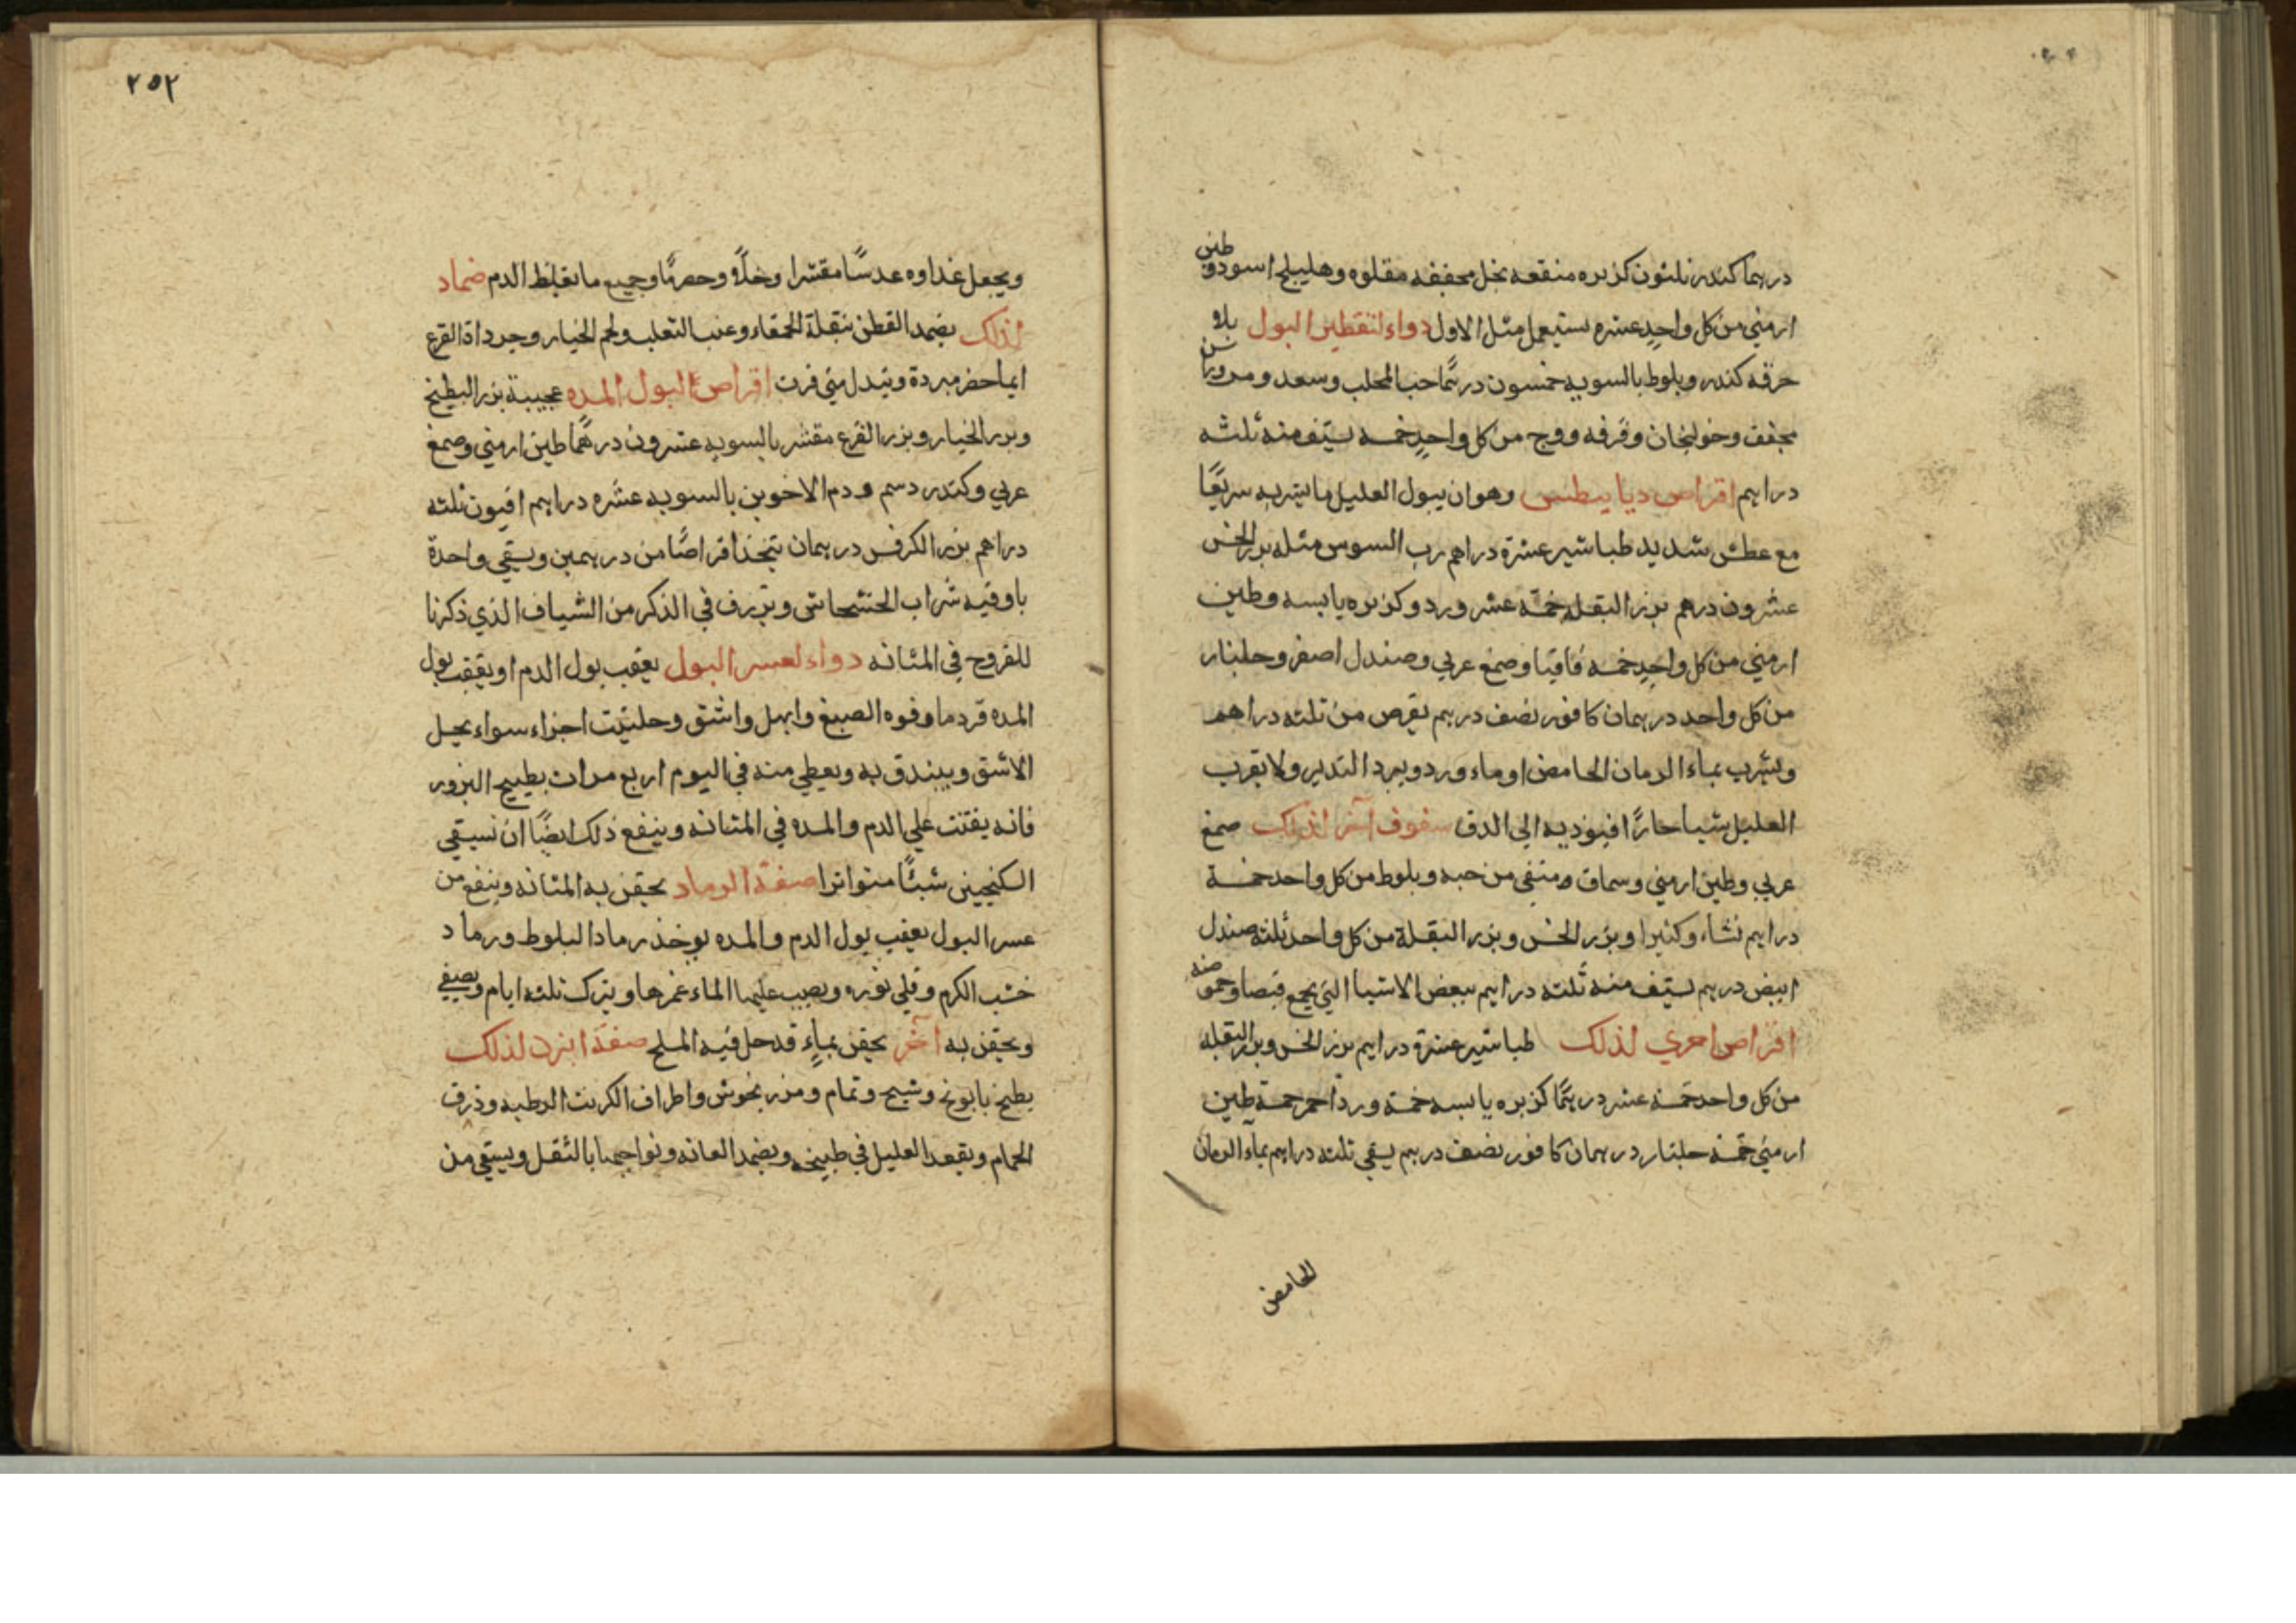 درهما كندر ثلثون كزبره منقعه بخل مجففه مقلوه وهليلج اسود وطين
ارمني من كل واحدٍ عشره يستعمل مثل الاول دواء لتقطير البول بلا
حرقه كندر وبلوط بالسويه خمسون درهمًا حب المحلب وسعد ومر
مجفف وخولنجان وقرفه ووج من كل واحدٍ خمسه يستف منه ثلثه
دراهم اقراص ديابيطس وهو ان يبول العليل ما يشربه سريعًا
مع عطش شديد طباشير عشرة دراهم رب السوس مثله بزر الخس
عشرون درهم بزر البقله خمسة عشر ورد وكزبره يابسه وطين
ارمني من كل واحدٍ خمسه قاقيا وصمغ عربي وصندل اصفر وجلنار
من كل واحد درهمان كافور نصف درهم يقرص من ثلثه دراهم
ويشرب بماء الرمان الحامض او ماء ورد ويبرد التدبير ولا يقرب
العليل شيا حارًا فيوديه الى الدق سفوف آخر لذلك صمغ
عربي وطين ارمني وسماق ومنقى من حبه وبلوط من كل واحد خمسة
دراهم نشاء وكثيرا وبزر الخس وبزر البقلة من كل واحد ثلثه صندل
ابيض درهم يستف منه ثلثه دراهم ببعض الاشيا التي يجمع قبضا وحموضه
اقراص اخري لذلك طباشير عشرة دراهم بزر الخس وبزر البقله
من كل واحد خمسة عشر درهمًا كزبره يابسه خمسة ورد احمر خمسة طين
ارمني خمسة جلنار درهمان كافور نصف درهم يسقي ثلثه دراهم بماء الرمان
الحامض
٢٥٢
ويجعل غذاوه عدسًا مقشرا وخلًا وحصرمًا وجميع ما يغلظ الدم ضماد
لذلك يضمد القطن ببقلة الحمقاء وعنب الثعلب ولحم الخيار وجرداة القرع
ايما حضر مبردة وتبدل متي فرت اقراص لبول المده عجيبة بزر البطيخ
وبزر الخيار وبزر القرع مقشر بالسويه عشرون درهمًا طين ارمني وصمغ
عربي وكندر دسم ودم الاخوين بالسويه عشره دراهم افيون ثلثه
دراهم بزر الكرفس درهمان يتخذ اقراصًا من درهمين ويسقي واحدة
باوقيه شراب الخشخاش ويزرف في الذكر من الشياف الذي ذكرنا
للقروح في المثانه دواء لعسر البول بعقب بول الدم او بعقب بول
المده قردمانا وفوه الصبغ وابهل واشق وحلتيت اجزاء سواء يحل
الاشق ويبندق به ويعطي منه في اليوم اربع مرات بطبيخ البزور
فانه يفتت علي الدم والمده في المثانه وينفع ذلك ايضًا ان يسقي
السكنجبين شيئًا متواترا صفة الرماد يحقن به المثانه وينفع من
عسر البول بعقب بول الدم والمده يوخذ رماد البلوط ورماد
خشب الكرم وقلي نوره ويصب عليها الماء غمرها ويترك ثلثه ايام ويصفي
ويحقن به آخر يحقن بماءٍ قد حل فيه الملح صفة ابزن لذلك
يطبخ بابونج وشيح ونمام ومرزنجوش واطراف الكرنب الرطبه وذرق
الحمام ويقعد العليل في طبيخه ويضمد العانه ونواحيها بالثفل ويسقي من